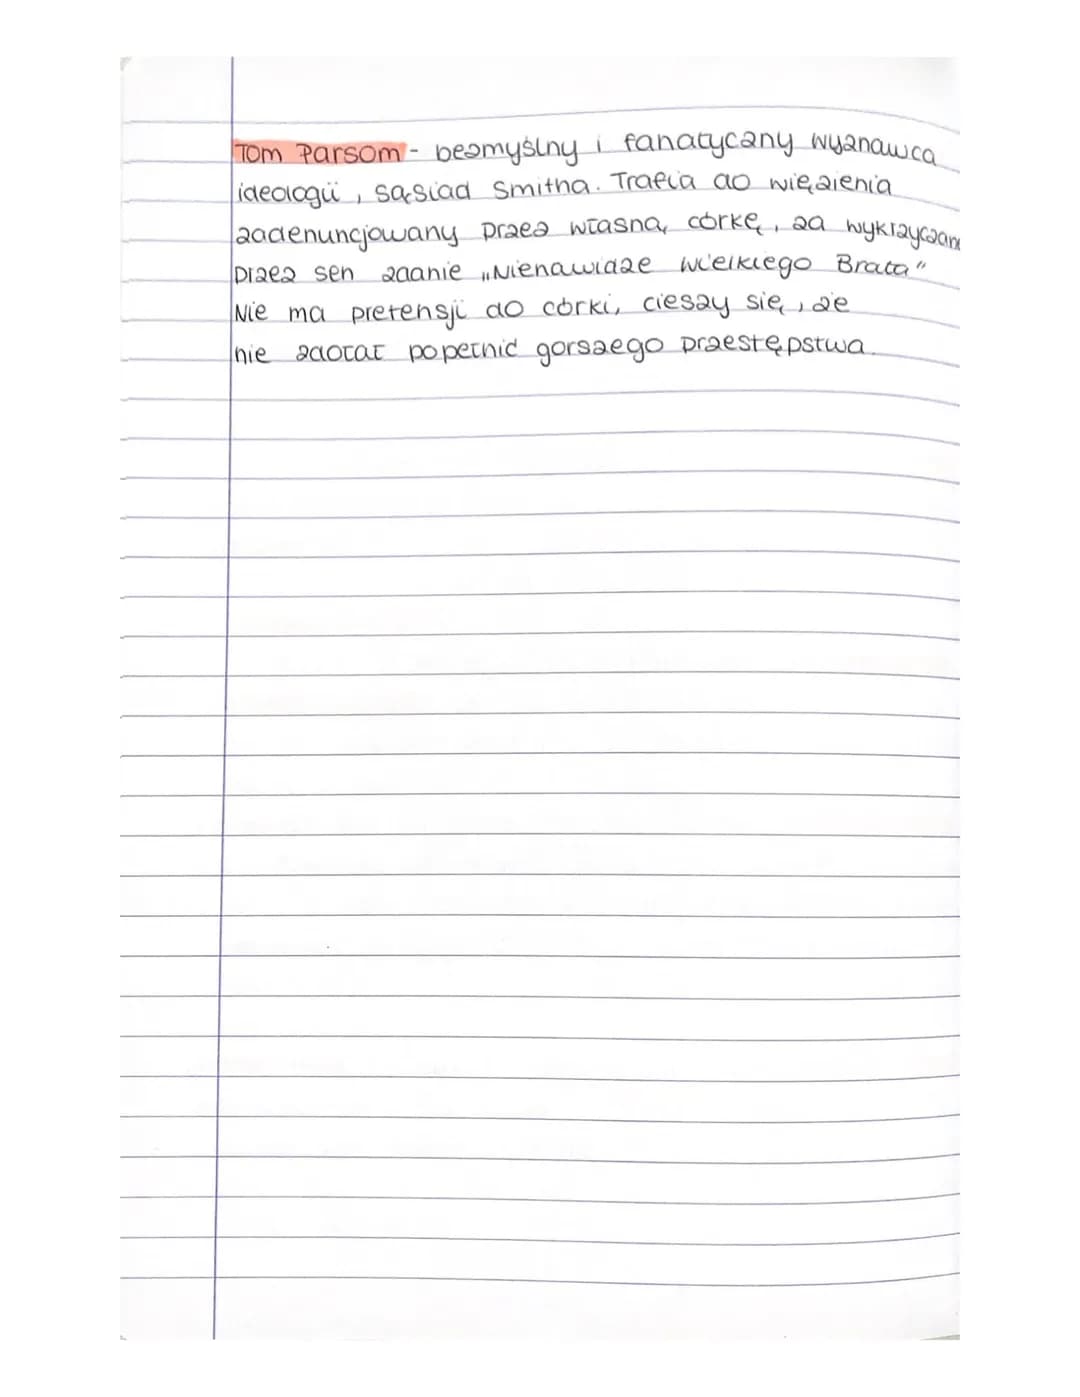 Tom Parsom - bezmyślny i fanatyczny wyznawca
ideologii, sąsiad Smitha. Trafia do więzienia
zadenuncjowany przez własną córkę, za
przez sen zdanie „Nienawidzę Wielkiego Brata"
Nie ma pretensji do córki, cieszy się, że
nie zdołał popełnić gorszego przestępstwa.